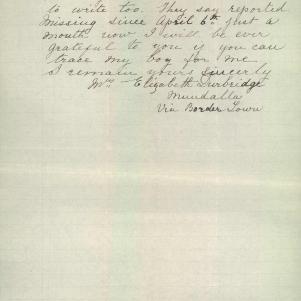 to write too. They say reported
missing since April 6th just a
month now I will be ever
grateful to you if you can
trace my boy for me
I remain yours sincerly
Mrs Elizabeth Durbridge
Mundalla
Via Border Town